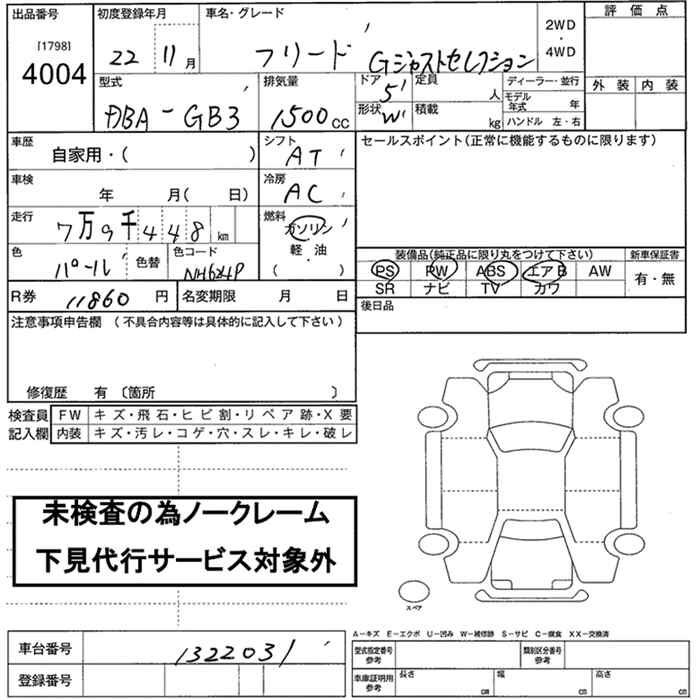 出品番号 初度登録年月 車名・グレード 2WD・4WD 評価点
[1798]
4004 22 11月 フリード Gジャストセレクション
型式 排気量 ドア 定員 ディーラー・並行 外装 内装
DBA-GB3 1500cc 5 人 モデル年式 年
形状 W 積載 kg ハンドル 左・右
車歴 シフト セールスポイント(正常に機能するものに限ります)
自家用・( ) AT
車検 冷房
年 月( 日) AC
走行 燃料
7万9千448km ガソリン
色 色替 色コード 軽・油 装備品(純正品に限り丸をつけて下さい) 新車保証書
パール NH624P ( ・ ) PS PW ABS エアB AW 有・無
SR ナビ TV カワ
R券 11860円 名変期限 月 日 後日品
注意事項申告欄 (不具合内容等は具体的に記入して下さい)
修復歴 有 〔箇所 〕
検査員 FW キズ・飛石・ヒビ割・リペア跡・X要
記入欄 内装 キズ・汚レ・コゲ・穴・スレ・キレ・破レ
未検査の為ノークレーム
下見代行サービス対象外
スペア
A-キズ E-エクボ U-凹み W-補修跡 S-サビ C-腐食 XX-交換済
車台番号 1322031 型式指定番号 参考 類別区分番号 参考
登録番号 車庫証明用 参考 長さ cm 幅 cm 高さ cm